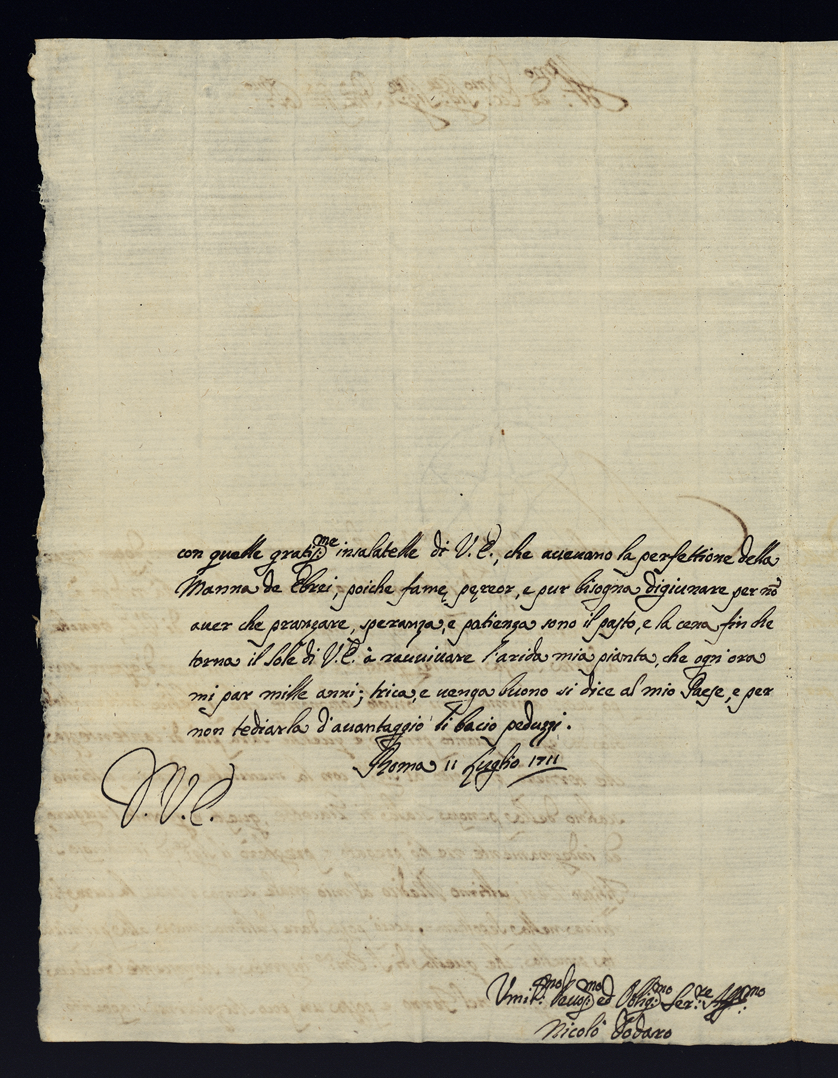 con quelle grati:me insalatelle di V. E., che aveuano la perfettione della
Manna de Ebrei, poiche fame pereor, e pur bisogna digiunare per nõ
auer che pranzare, speranza, e patienza sono il pasto, e la cena fin che
torna il sole di V. E. à rauuiuare l'arida mia pianta, che ogn'ora
mi par mille anni; trica, e uenga buono si dice al mio Paese, e per
non tediarla d'auantaggio li bacio peduzzi.
Roma 11 Luglio 1711
D. V. E.
Vmil:mo Deuot:mo ed Oblig:mo Ser:re Aff:mo
Nicolò Todaro